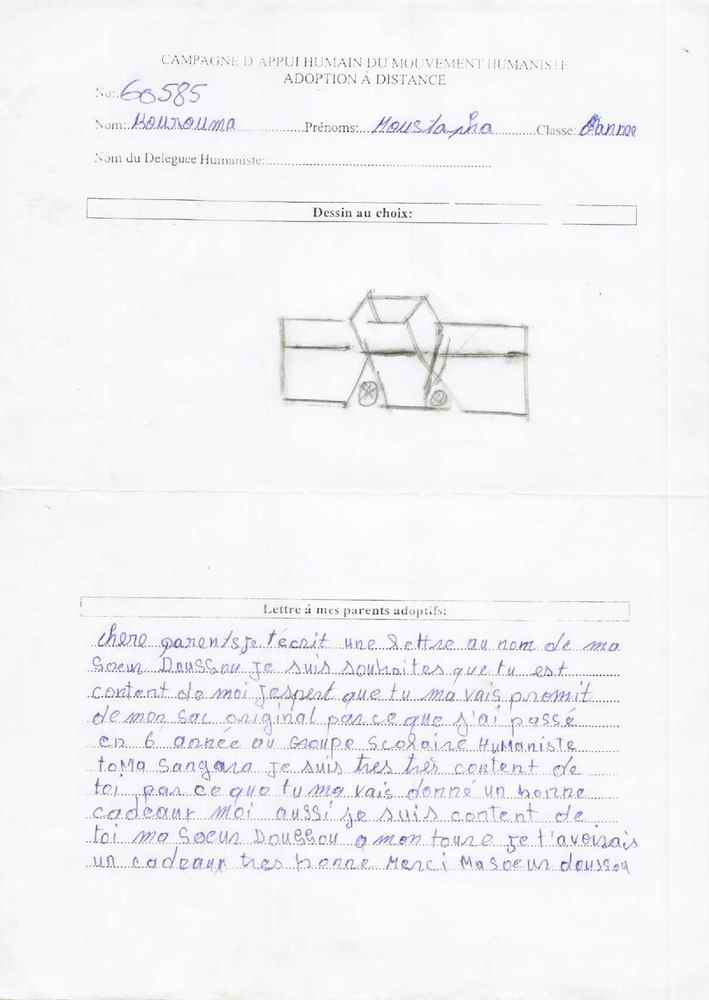 CAMPAGNE D APPUI HUMAIN DU MOUVEMENT HUMANISTE
ADOPTION Á DISTANCE
No: 60585
Nom: Kourouma Prénoms: Moustapha Classe: 6annee
Nom du Deléguée Humaniste:
Dessin au choix:
Lettre á mes parents adoptifs:
chere parents je t'ecrit une lettre au nom de ma
Soeur Doussou je suis souhaites que tu est
content de moi Jespert que tu ma vais promit
de mon sac original par ce que j'ai passé
en 6 année au Groupe Scolaire HuManiste
toMa Sangara Je suis tres très content de
toi par ce que tu ma vais donné un bonne
cadeaux moi aussi je suis content de
toi ma Soeur Doussou a mon toure je t'avoirais
un cadeaux tres bonne Merci Ma soeur doussou